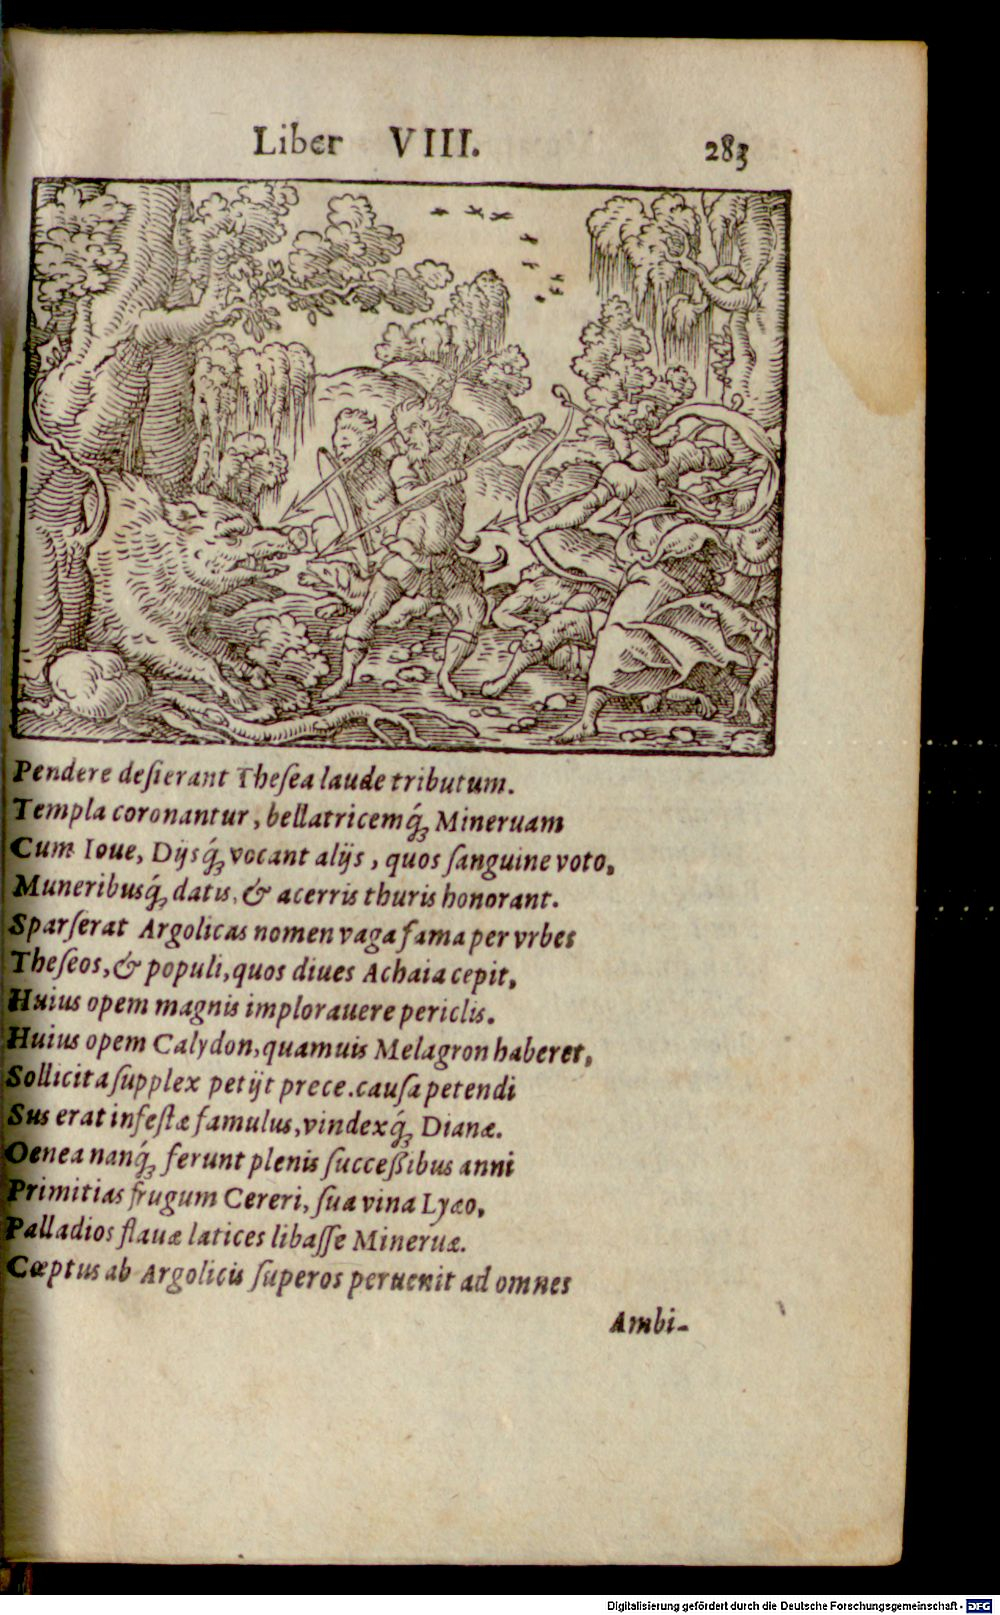 Liber VIII. 283
Pendere deſierant Theſea laude tributum.
Templa coronantur, bellatricemq́; Mineruam
Cum Ioue, Dijsq́; vocant alijs, quos ſanguine voto,
Muneribusq́; datis, & acerris thuris honorant.
Sparſerat Argolicas nomen vaga fama per vrbes
Theſeos, & populi, quos diues Achaia cepit,
Huius opem magnis implorauere periclis.
Huius opem Calydon, quamuis Melagron haberet,
Sollicita ſupplex petijt prece. cauſa petendi
Sus erat infeſtæ famulus, vindexq́; Dianæ.
Oenea nanq́; ferunt plenis ſucceßibus anni
Primitias frugum Cereri, ſua vina Lyæo,
Palladios flauæ latices libaſſe Mineruæ.
Cœptus ab Argolicis ſuperos peruenit ad omnes
Ambi-
Digitalisierung gefördert durch die Deutsche Forschungsgemeinschaft - DFG